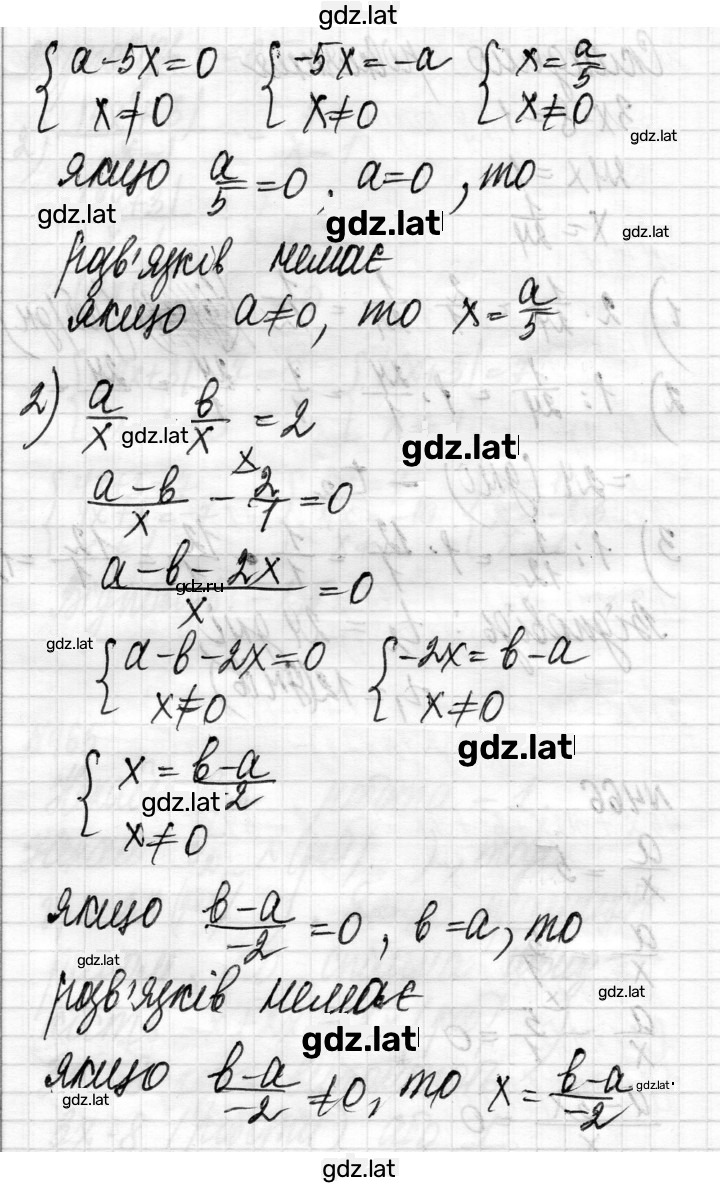 gdz.lat
{ a-5x=0 { -5x=-a { x=a/5
x≠0 x≠0 x≠0
gdz.lat
якщо a/5=0, a=0, то
gdz.lat gdz.lat gdz.lat
розв'язків немає
якщо a≠0, то x=a/5
2) a/x в/x =2
gdz.lat gdz.lat
(a-в)/x - 2/1 =0
x
(a-в-2x)/x =0
gdz.ru
gdz.lat
{ a-в-2x=0 { -2x=в-a
x≠0 x≠0
gdz.lat
{ x=(в-a)/-2
gdz.lat
x≠0
якщо (в-a)/-2 =0, в=a, то
gdz.lat
розв'язків немає
gdz.lat
gdz.lat
якщо (в-a)/-2 ≠0, то x=(в-a)/-2
gdz.lat gdz.lat
gdz.lat